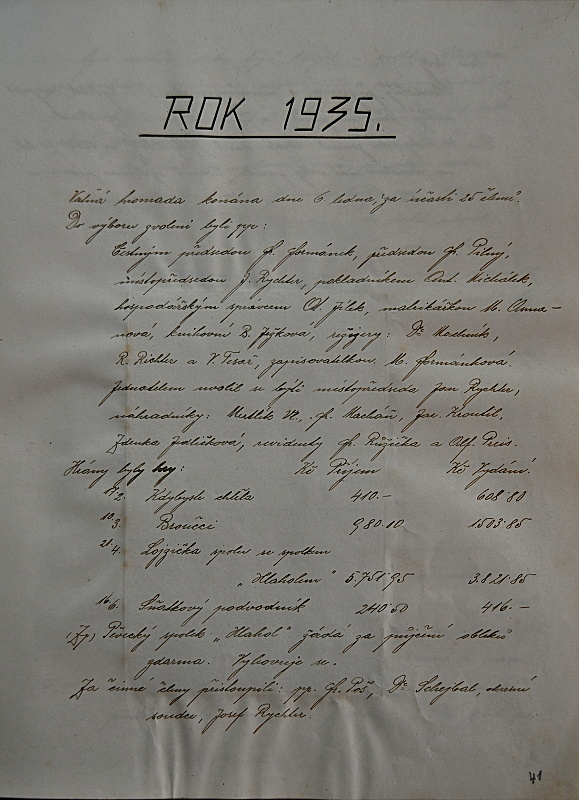 ROK 1935.
Valná hromada konána dne 6. ledna, za účasti 25 členů.
Do výboru zvoleni byli pp:
Čestným předsedou Fr. Formánek, předsedou Fr. Pilný,
místopředsedou J. Rychter, pokladníkem Ant. Michálek,
hospodářským správcem Ot. Jílek, maskérkou M. Anna-
nová, knihovní B. Jýžková, režiséry: Dr Mecl
R. Richter a V. Tesař, zapisovatelkou M. Formánková.
Jednatelem uvolil se býti místopředseda Jan Rychter,
náhradníky: Mertlík Vl., Fr. Machář, Jar. Kroutil,
Zdenka Jedličková, revidenty Fr. Růžička a Alf. Preis.
Hrány byly hry: Kč Příjem Kč Vydání.
17/2. Kdybyste chtěla 410.- 608·80
10/3. Broučci 980·10 1503·85
21/4. Lojzička spolu se spolkem
„Hlaholem" 5.751·95 3.821·85
16/6. Sňatkový podvodník 240·50 416.-
Pěvecký spolek „Hlahol" žádá za půjčení obleků
zdarma. Vyhovuje se.
Za činné členy přistoupili: pp. Fr. Poš, Dr Schejbal, okresní
soudce, Josef Rychter.
41